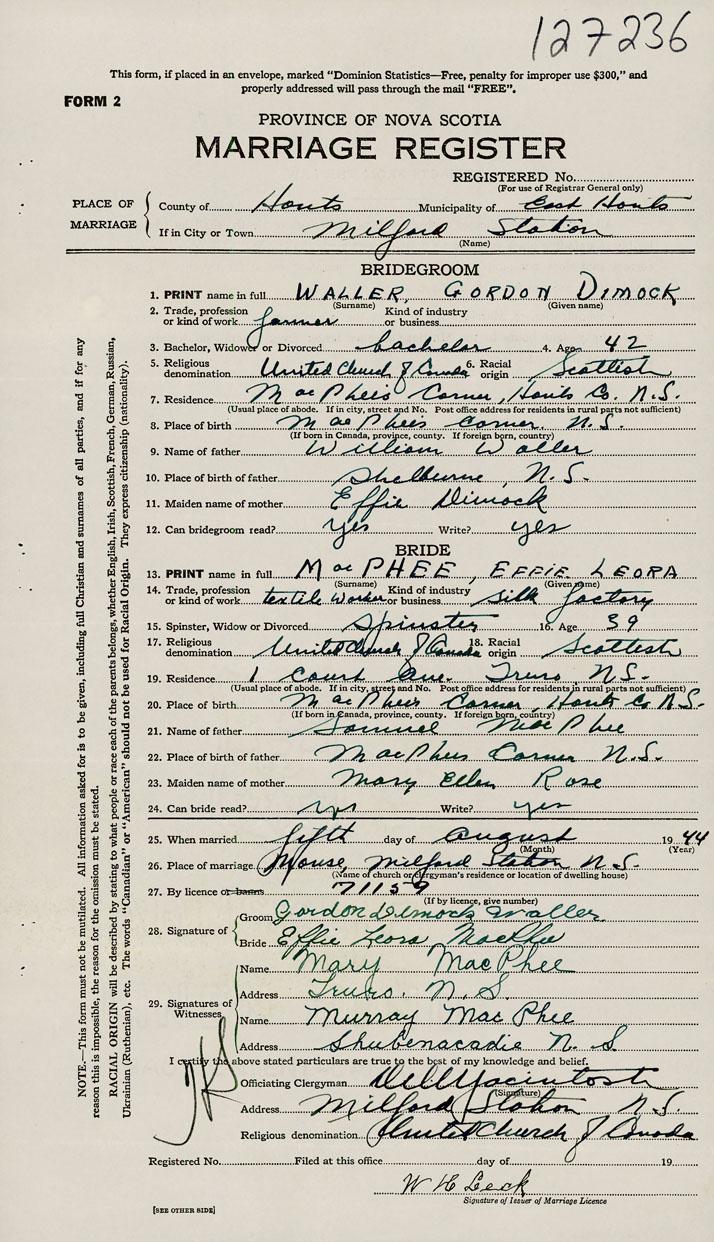 127236
This form, if placed in an envelope, marked “Dominion Statistics—Free, penalty for improper use $300,” and
properly addressed will pass through the mail “FREE”.
FORM 2
PROVINCE OF NOVA SCOTIA
MARRIAGE REGISTER
REGISTERED No.
(For use of Registrar General only)
PLACE OF MARRIAGE
County of Hants Municipality of East Hants
If in City or Town Milford Station
(Name)
BRIDEGROOM
1. PRINT name in full WALLER, GORDON DIMOCK
(Surname) (Given name)
2. Trade, profession or kind of work farmer Kind of industry or business
3. Bachelor, Widower or Divorced bachelor 4. Age 42
5. Religious denomination United Church of Canada 6. Racial origin Scottish
7. Residence MacPhee's Corner, Hants Co. N.S.
(Usual place of abode. If in city, street and No. Post office address for residents in rural parts not sufficient)
8. Place of birth MacPhee's Corner. N.S.
(If born in Canada, province, county. If foreign born, country)
9. Name of father William Waller
10. Place of birth of father Shelburne, N.S.
11. Maiden name of mother Effie Dimock
12. Can bridegroom read? yes Write? yes
BRIDE
13. PRINT name in full MacPHEE, EFFIE LEORA
(Surname) (Given name)
14. Trade, profession or kind of work textile worker Kind of industry or business silk factory
15. Spinster, Widow or Divorced spinster 16. Age 39
17. Religious denomination United Church of Canada 18. Racial origin Scottish
19. Residence 1 Court Ave. Truro N.S.
(Usual place of abode. If in city, street and No. Post office address for residents in rural parts not sufficient)
20. Place of birth MacPhee's Corner, Hants Co N.S.
(If born in Canada, province, county. If foreign born, country)
21. Name of father Samuel MacPhee
22. Place of birth of father MacPhees Corner N.S.
23. Maiden name of mother Mary Ellen Rose
24. Can bride read? yes Write? yes
25. When married fifth day of August 1944
(Month) (Year)
26. Place of marriage Manse, Milford Station N.S.
(Name of church or clergyman's residence or location of dwelling house)
27. By licence or banns 71159
(If by licence, give number)
28. Signature of
Groom Gordon Dimock Waller
Bride Effie Leora MacPhee
29. Signatures of Witnesses
Name Mary MacPhee
Address Truro. N.S.
Name Murray MacPhee
Address Shubenacadie N.S.
I certify the above stated particulars are true to the best of my knowledge and belief.
Officiating Clergyman Macintosh
(Signature)
Address Milford Station N.S.
Religious denomination United Church of Canada
Registered No. Filed at this office day of 19
W H Leck
Signature of Issuer of Marriage Licence
[SEE OTHER SIDE]
NOTE.—This form must not be mutilated. All information asked for is to be given, including full Christian and surnames of all parties, and if for any
reason this is impossible, the reason for the omission must be stated.
RACIAL ORIGIN will be described by stating to what people or race each of the parents belongs, whether English, Irish, Scottish, French, German, Russian,
Ukrainian (Ruthenian), etc. The words “Canadian” or “American” should not be used for Racial Origin. They express citizenship (nationality).